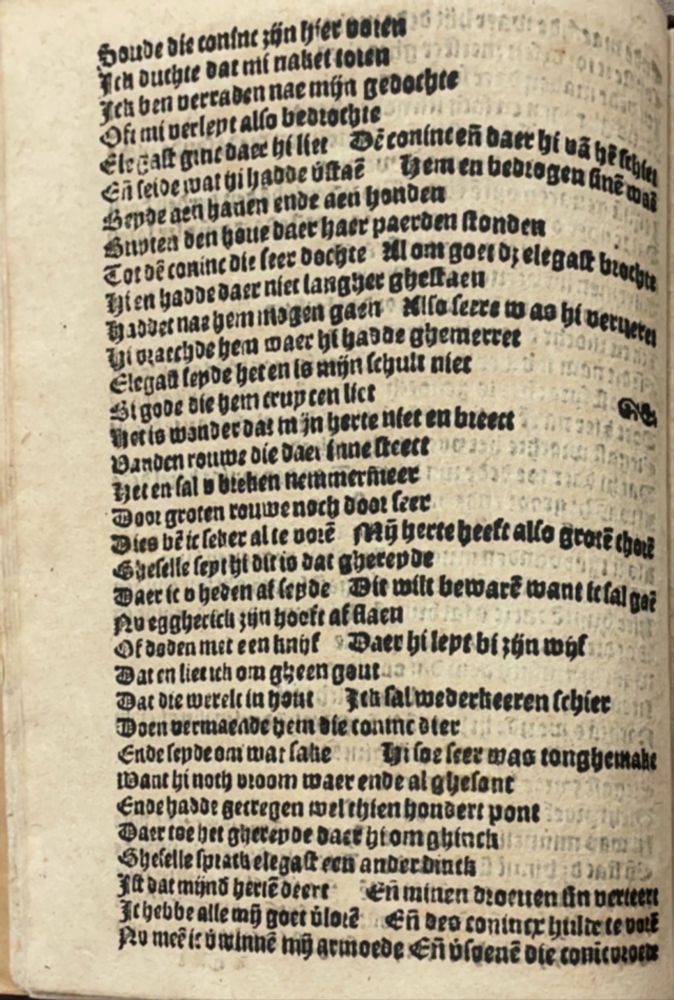 Soude die coninc zijn hier voren
Ick duchte dat mi naket toren
Ick ben verraden nae mijn gedochte
Oft mi verleyt also bedrochte
Elegast ginc daer hi liet Dē coninc eñ daer hi vā hē schiet
Eñ seide wat hi hadde v̄staē Hem en bedrogen sinē waē
Seyde aen hanen ende aen honden
Buyten den houe daer haer paerden stonden
Tot dē coninc die seer dochte Al om goet dz elegast brochte
Hi en hadde daer niet langher ghestaen
Haddet nae hem mogen gaen Also seere was hi verueert
Hi vraechde hem waer hi hadde ghemerret
Elegast seyde het en is mijn schult niet
Bi gode die hem cruycen liet
Het is wonder dat mijn herte niet en breect
Vanden rouwe die daer inne steect
Het en sal v breken nemmermeer
Door groten rouwe noch door seer
Dies bē ic seker al te vorē Mij herte heeft also grotē thorē
Gheselle seyt hi dit is dat ghereyde
Daer ic v heden af seyde Dit wilt bewarē want ic sal gaē
Nv eggherick zijn hooft af slaen
Of doden met een knijf Daer hi leyt bi zijn wijf
Dat en liet ick om gheen gout
Dat die werelt in hout Ick sal wederkeeren schier
Doen vermaende hem die coninc dier
Ende seyde om wat sake Hi soe seer was tonghemake
Want hi noch vroom waer ende al ghesont
Ende hadde gecregen wel thien hondert pont
Daer toe het ghereyde daer hi om ghinck
Gheselle sprack elegast een ander dinck
Ist dat mijns hertē deert Eñ minen droeuen sin verteert
Ic hebbe alle mij goet v̄lorē Eñ des conincx hulde te vorē
Nv meē ic v̄winnē mij armoede Eñ v̄soenē die coninc vroede